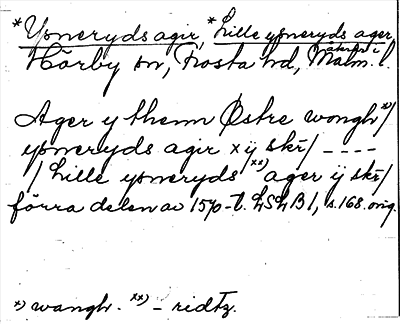 *Ysneryds agir, *Lille ysneryds ager,
åkrar i
Hörby sn, Frosta hd, Malm. l.
Ager y themn Østre wongh x)/
ysneryds agir x ÿ skr/ ----
/ Lille ysneryds xx) ager ÿ skr/
förra delen av 1570-t. LSLB 1, s. 168. orig.
x) wangh. xx) – ridtz.